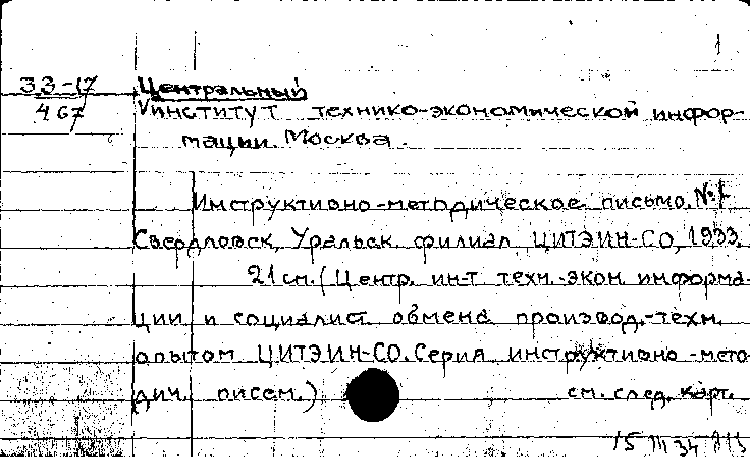 1
33-17
467
Центральный
институт технико-экономической инфор-
мации. Москва.
Инструктивно-методическое письмо. №1
Свердловск, Уральск. филиал ЦИТЭИН-СО, 1933.
21 см. (Центр. ин-т техн.-экон. информа-
ции и социалист. обмена производ.-техн.
опытом ЦИТЭИН-СО. Серия инструктивно-мето
дич. писем.)
см. след. карт.
15 III 34